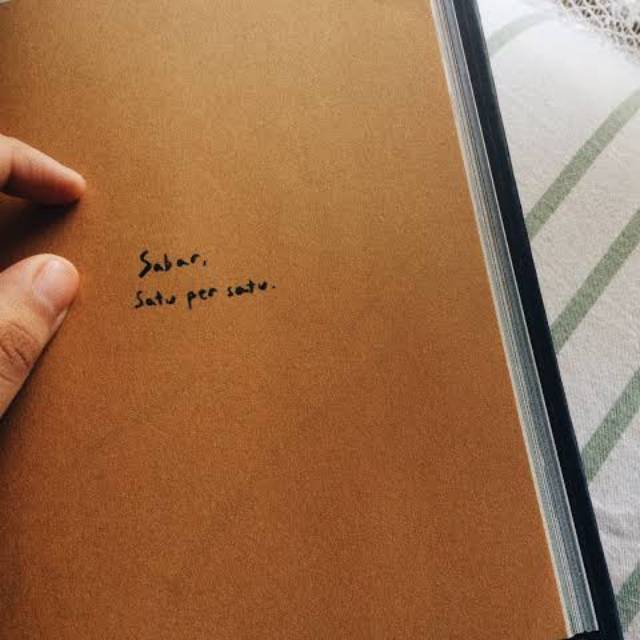 Sabar,
Satu per satu.